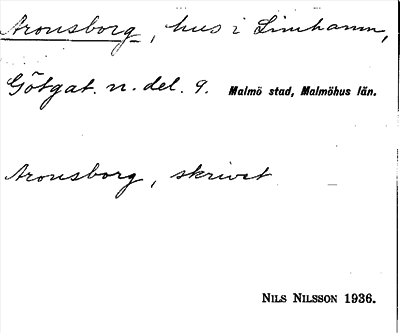 Aronsborg, hus i Limhamn,
Götgat. n. del. 9. Malmö stad, Malmöhus län.
Aronsborg, skrivet
NILS NILSSON 1936.